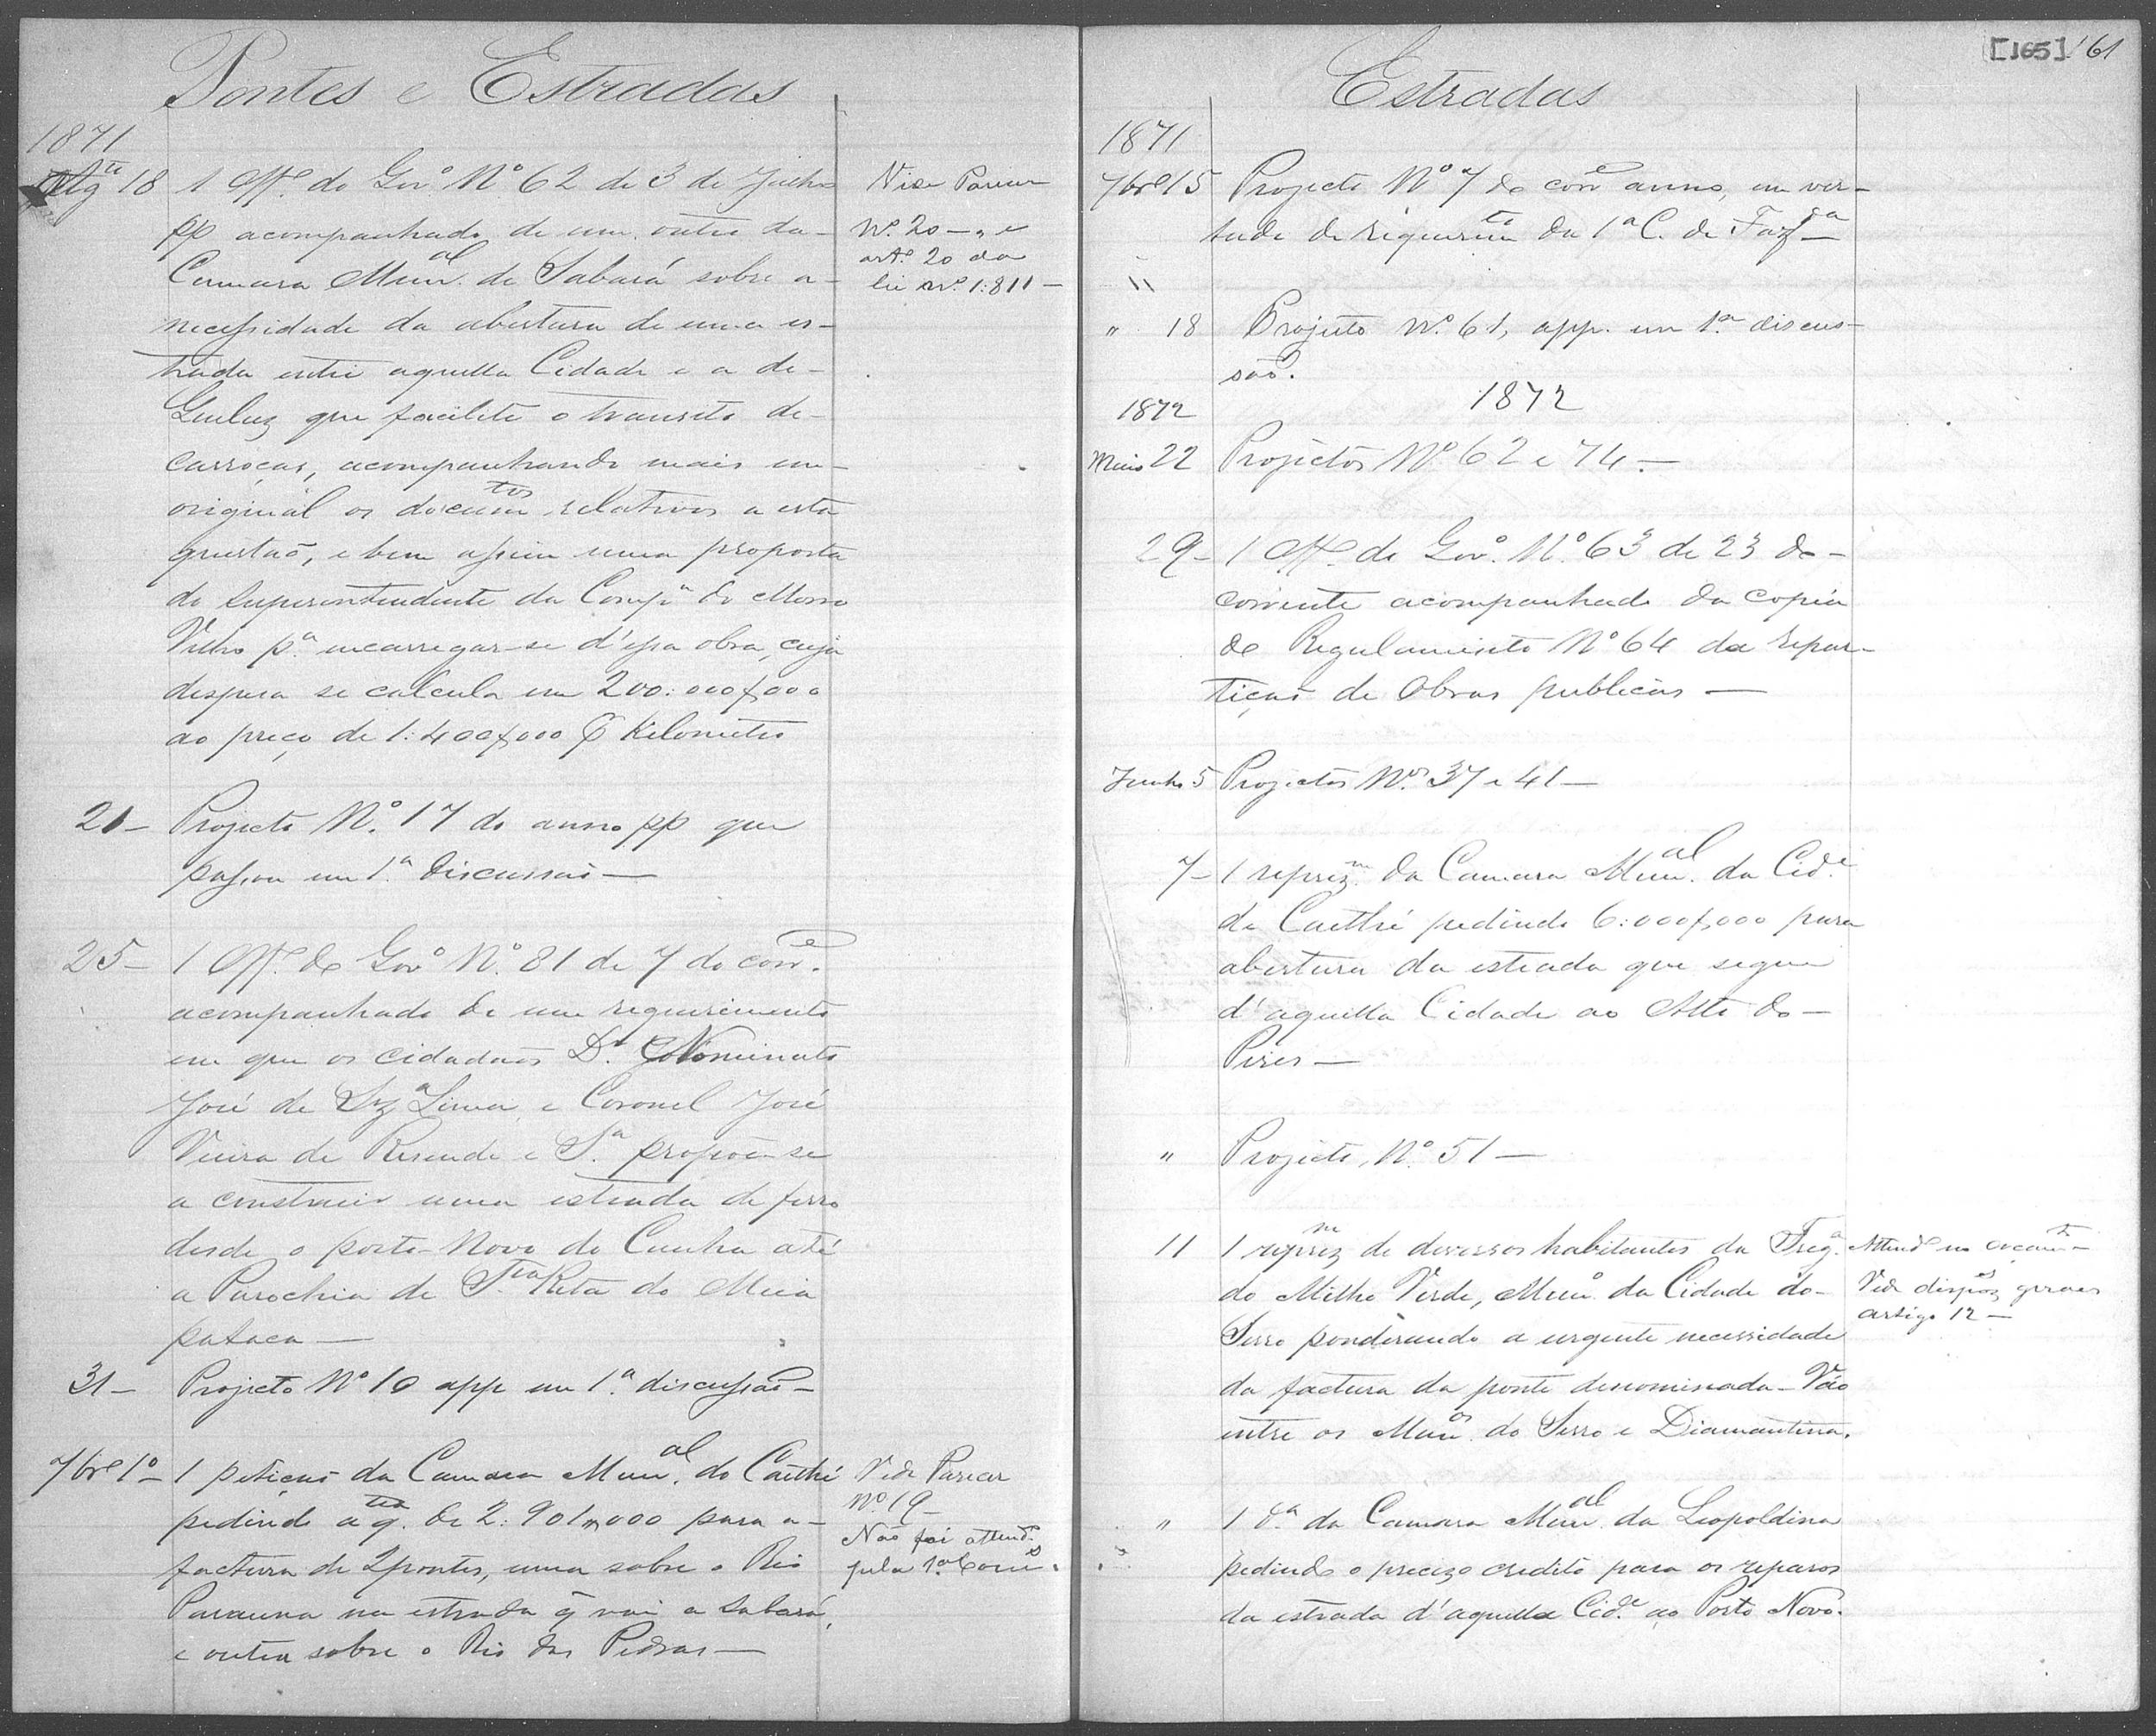 Pontes e Estradas
1871
Agto 18 1 Offo do Govo No 62 de 3 de Julho
pp acompanhado de um outro da
Camara Munal de Sabará sobre a
necessidade da abertura de uma es-
trada entre aquella Cidade e a de
Queluz que facilite o transito de
carroças, acompanhando mais em
original os documtos relativos a esta
questão, e bem assim uma proposta
do Superintendente da Compa do Morro
Velho pa encarregar-se d'essa obra, cuja
despesa se calcula em 200:000$000
ao preço de 1:400$000 p Kilometro
Vide Parecer
No 20 - e
arto 20 da
lei no 1:811 -
21 - Projecto No 17 do anno pp que
passou em 1a Discussão -
25 - 1 Offo do Govo No 81 de 7 do corre
acompanhado de um requerimento
em que os cidadãos Dr Nominato
José de Sza Lima, e Coronel José
Vieira de Resende e Sa propoe-se
a construir uma estrada de ferro
desde o porto-Novo do Cunha até
a Parochia de Sta Rita do Meia
pataca -
31 - Projecto No 10 app em 1a discussão -
7bro 1o - 1 petição da Camara Munal do Caethé
pedindo a qtia de 2:901$000 para a
factura de 2 pontes, uma sobre o Rio
Parauna na estrada q̃ vai a Sabará,
e outra sobre o Rio das Pedras -
Vide Parecer
No 19 -
Não foi attendo
pela 1a Come.
[165] 161
Estradas
1871
7bro 15 Projecto No 7 do corre anno, em ver-
tude de requerimto da 1a C. de Fazda
" 18 Projecto no 61, app. em 1a discus-
são.
1872
1872
Maio 22 Projectos No 62 e 74 -
29 - 1 Offo do Govo No 63 de 23 do
corrente acompanhado da copia
do Regulamento No 64 da repar-
tição de Obras publicas -
Junho 5 Projectos Nos 37 e 41 -
7 - 1 reprezm da Camara Munal da Cide
de Caethé pedindo 6:000$000 para
abertura da estrada que segue
d'aquella Cidade ao Alto do
Pires -
" Projecto No 51 -
11 1 reprezm de diversos habitantes da Frega
do Milho Verde, Muno da Cidade do
Serro ponderando a urgente necessidade
da factura da ponte denominada - Vão
entre os Munos do Serro e Diamantina.
Attendo no orçamto -
Vide dispoz geraes
artigo 12 -
" 1 da da Camara Munal da Leopoldina
pedindo o precizo credito para os reparos
da estrada d'aquella Cide ao Porto Novo.